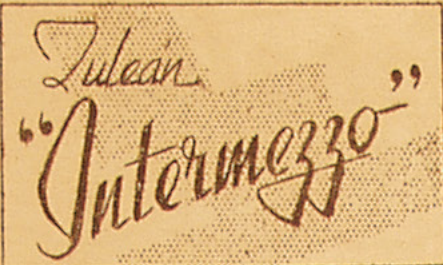 Zuleán
“Intermezzo”